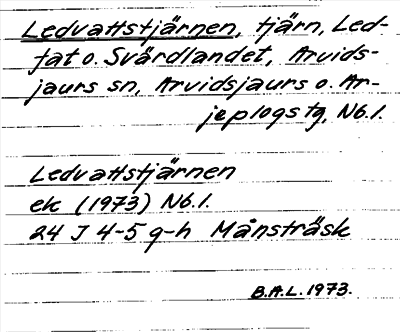 Ledvattstjärnen, tjärn, Led-
fat o. Svärdlandet, Arvids-
jaurs sn, Arvidsjaurs o. Ar-
jeplogs tg, Nb.l.
Ledvattstjärnen
ek (1973) Nb.l.
24 J 4-5 g-h Månsträsk
B.A.L. 1973.